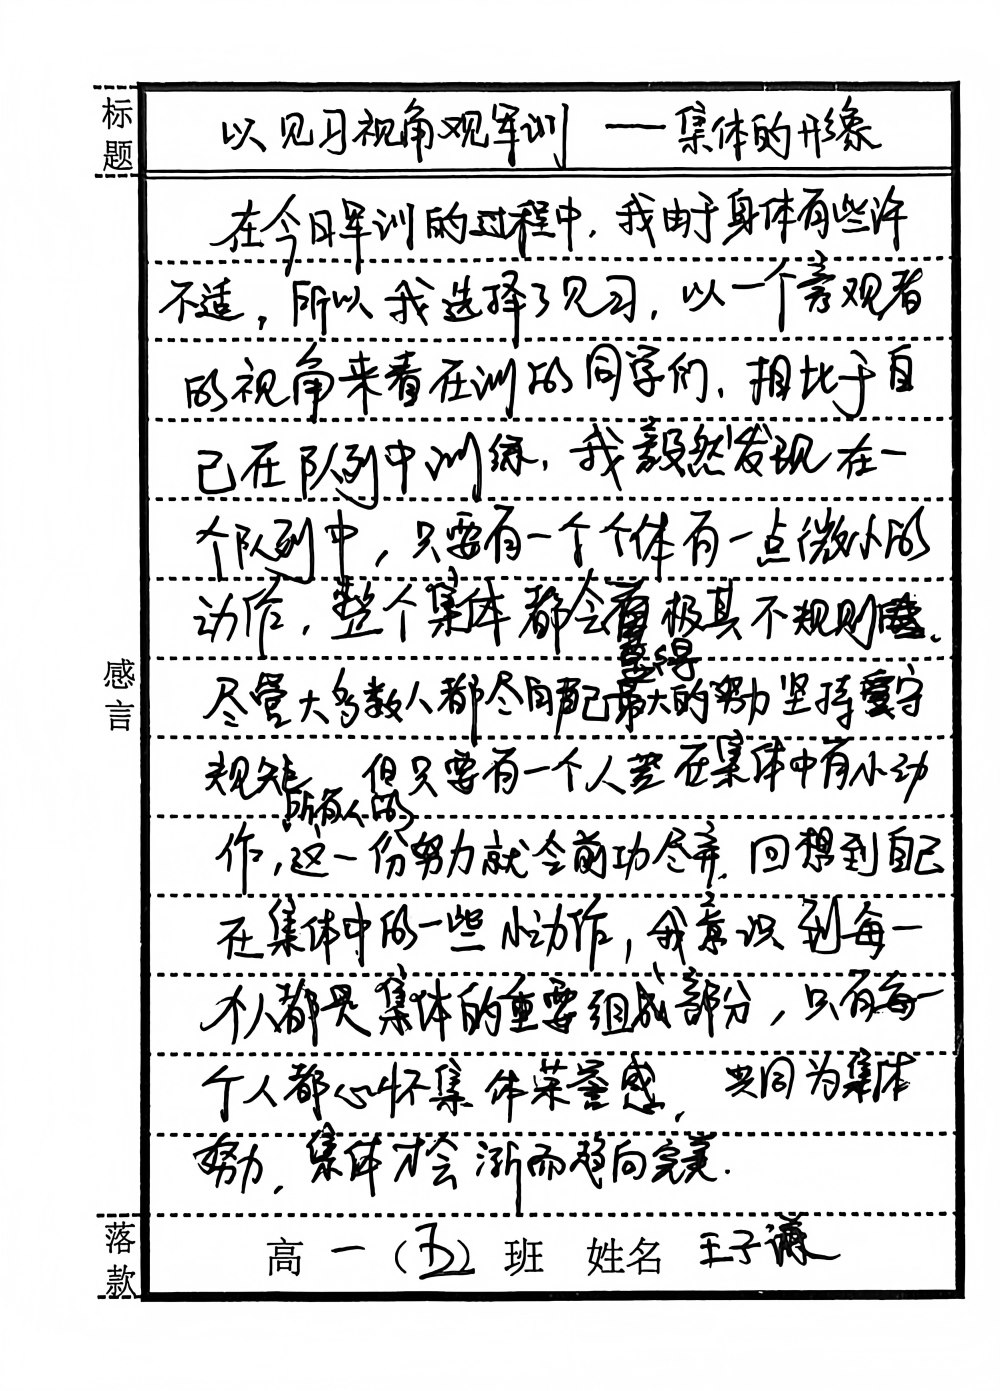 标题
以见习视角观军训 ——集体的形象
在今日军训的过程中,我由于身体有些许
不适,所以我选择了见习,以一个旁观者
的视角来看在训的同学们,相比于自
己在队列中训练,我毅然发现在一
个队列中,只要有一个个体有一点微小的
动作,整个集体都会显得极其不规则。
尽管大多数人都尽自己最大的努力坚持守
规矩,但只要有一个人在集体中有小动
作,所有人的这一份努力就会前功尽弃,回想到自己
在集体中的一些小动作,我意识到每一
个人都是集体的重要组成部分,只有每一
个人都心怀集体荣誉感,共同为集体
努力,集体才会渐而趋向完美.
感言
落款
高一(五)班 姓名 王子谦